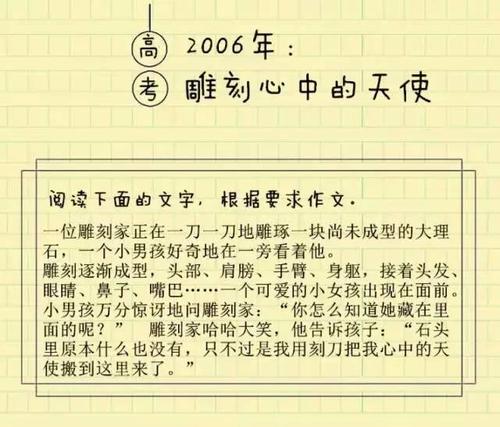 高考
2006年：
雕刻心中的天使
阅读下面的文字，根据要求作文。
一位雕刻家正在一刀一刀地雕琢一块尚未成型的大理
石，一个小男孩好奇地在一旁看着他。
雕刻逐渐成型，头部、肩膀、手臂、身躯，接着头发、
眼睛、鼻子、嘴巴……一个可爱的小女孩出现在面前。
小男孩万分惊讶地问雕刻家：“你怎么知道她藏在里
面的呢？” 雕刻家哈哈大笑，他告诉孩子：“石头
里原本什么也没有，只不过是我用刻刀把我心中的天
使搬到这里来了。”